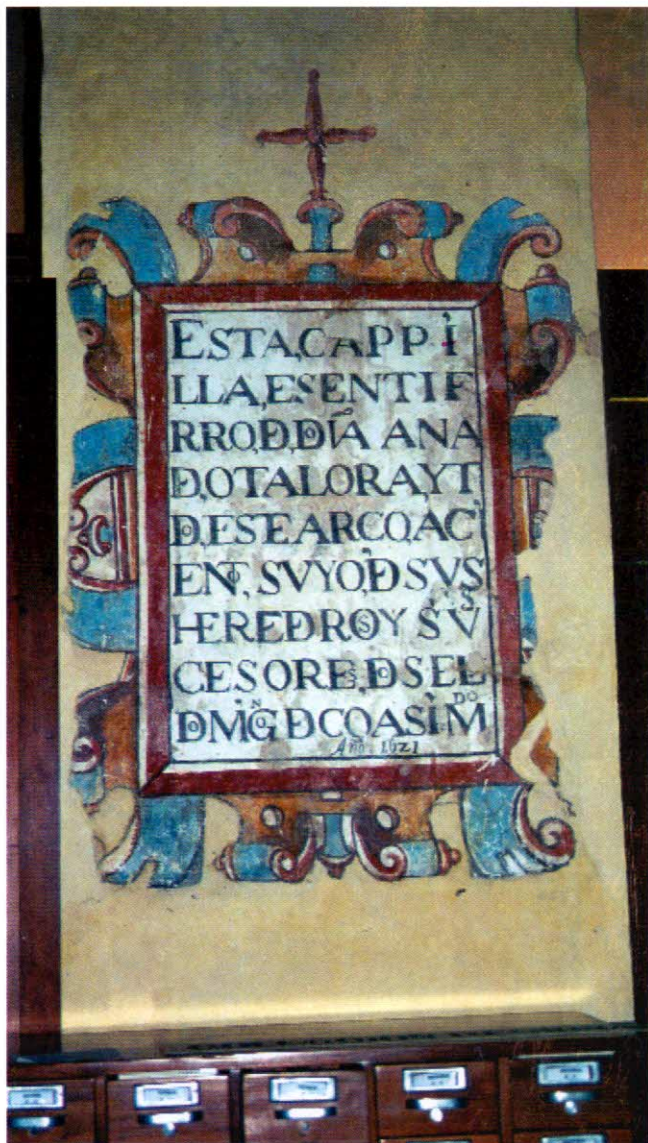 ESTA,CAPPI
LLA,ESENTIE
RRO,D,DÑA ANA
D,OTALORA,YT
D,ESEARCO,AC
EN, SVYO,D SVS
HEREDROS Y SV
CESORES,DSEL
DMG D COASIM
Año 1621